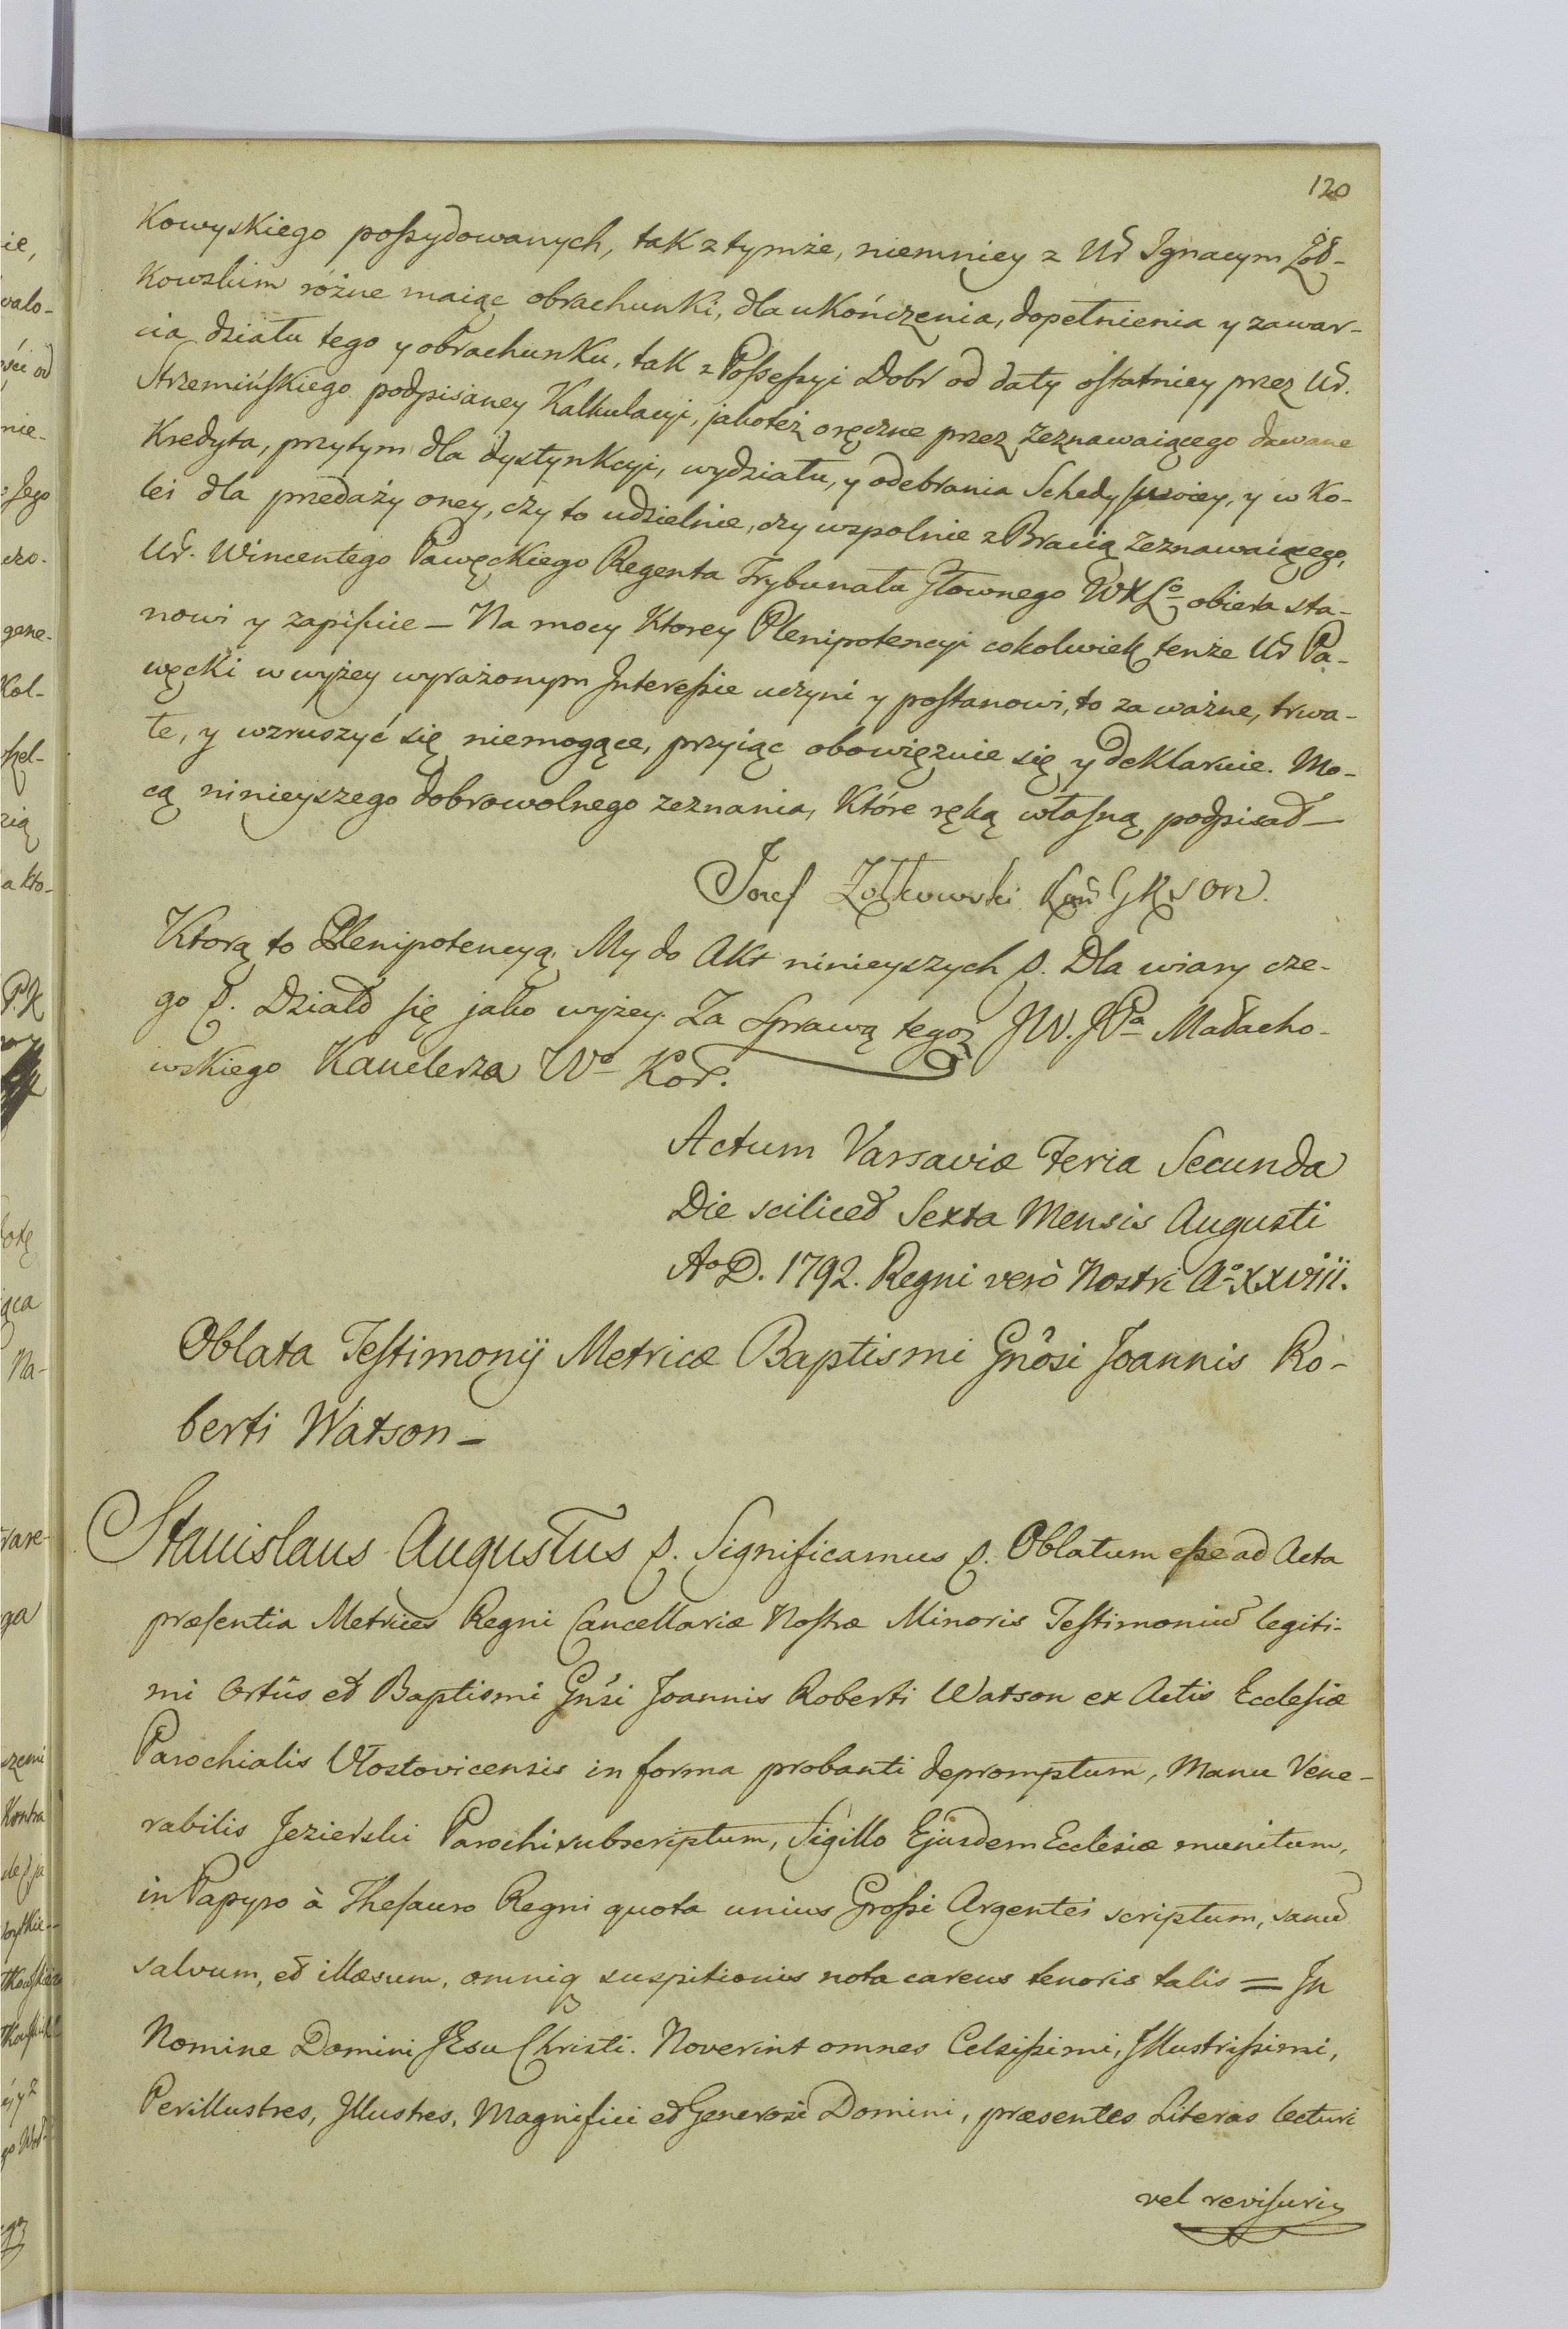 120
Kowyskiego possydowanych, tak z tymże, niemniey z Ur Ignacym Żoł-
kowskim różne maiąc obrachunki, dla ukończenia, dopełnienia y zawar-
cia działu tego y obrachunku, tak z Possessyi Dobr od daty ostatniey przez Ur.
Strzemińskiego podpisaney Kalkulacyi, jakoteż oręczne przez Zeznawaiącego dawane
Kredyta, przytym dla dystynkcyi, wydziału, y odebrania Schedy swoiey, y w Ko-
lei dla przedaży oney, czy to udzielnie, czy wspolnie z Bracią Zeznawaiącego,
Ur. Wincentego Pawęckiego Regenta Trybunału Głownego WXLo obiera sta-
nowi y zapisuie — Na mocy Ktorey Plenipotencyi cokolwiek tenże Ur Pa-
węcki w wyżey wyrażonym Interessie uczyni y postanowi, to za ważne, trwa-
łe, y wzruszyć się niemogące, przyiąc obowięzuie się y deklaruie. Mo-
cą ninieyszego dobrowolnego zeznania, Które ręką własną podpisał —
Jozef Zołkowski
Ktorą to Plenipotencyą, My do Akt ninieyszych p. Dla wiary cze-
go p. Działo się jako wyżey. Za Sprawą tegoż JW. JPa Małacho-
wskiego Kanclerza Wo Kor.
Actum Varsaviæ Feria Secunda
Die scilicet Sexta Mensis Augusti
Ao D. 1792. Regni verò Nostri Ao XXVIII.
Oblata Testimonij Metricæ Baptismi Gnôsi Joannis Ro-
berti Watson —
Stanislaus Augustus p. Significamus p. Oblatum esse ad Acta
præsentia Metrices Regni Cancellariæ Nostræ Minoris Testimoniū legiti-
mi Ortûs et Baptismi Gnsi Joannis Roberti Watson ex Actis Ecclesiæ
Parochialis Włostovicensis in forma probanti depromptum, Manu Vene-
rabilis Jezierski Parochi subscriptum, Sigillo Ejusdem Ecclesiæ munitum,
in Papyro à Thesauro Regni quota unius Grossi Argentei scriptum, sanū
salvum, et illæsum, omniq suspitionis nota carens tenoris talis = In
Nomine Domini JEsu Christi. Noverint omnes Celsissimi, Illustrissimi,
Perillustres, Illustres, Magnifici et Generosi Domini, præsentes Literas lecturi
vel revisuri